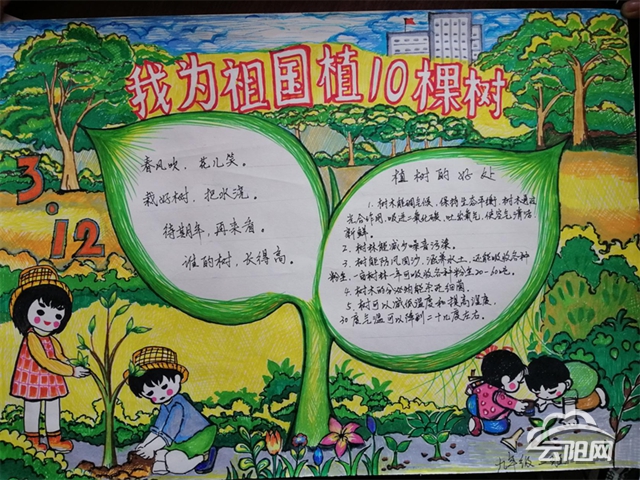 我为祖国植10棵树
3.12
春风吹，花儿笑。
栽好树，把水浇。
待期年，再来看。
谁的树，长得高。
植树的好处
1. 树木能调气候，保持生态平衡，树木通过
光合作用，吸进二氧化碳，吐出氧气，使空气清洁
新鲜。
2. 树林能减少噪音污染。
3. 树能防风固沙，涵养水土，还能吸收各种
粉尘，一亩树林一年可吸收各种粉尘20-60吨。
4. 树木的分泌物能杀死细菌。
5. 树可以减低温度和提高湿度，
30度气温可以得到二十七度左右。
九年级
云阳网